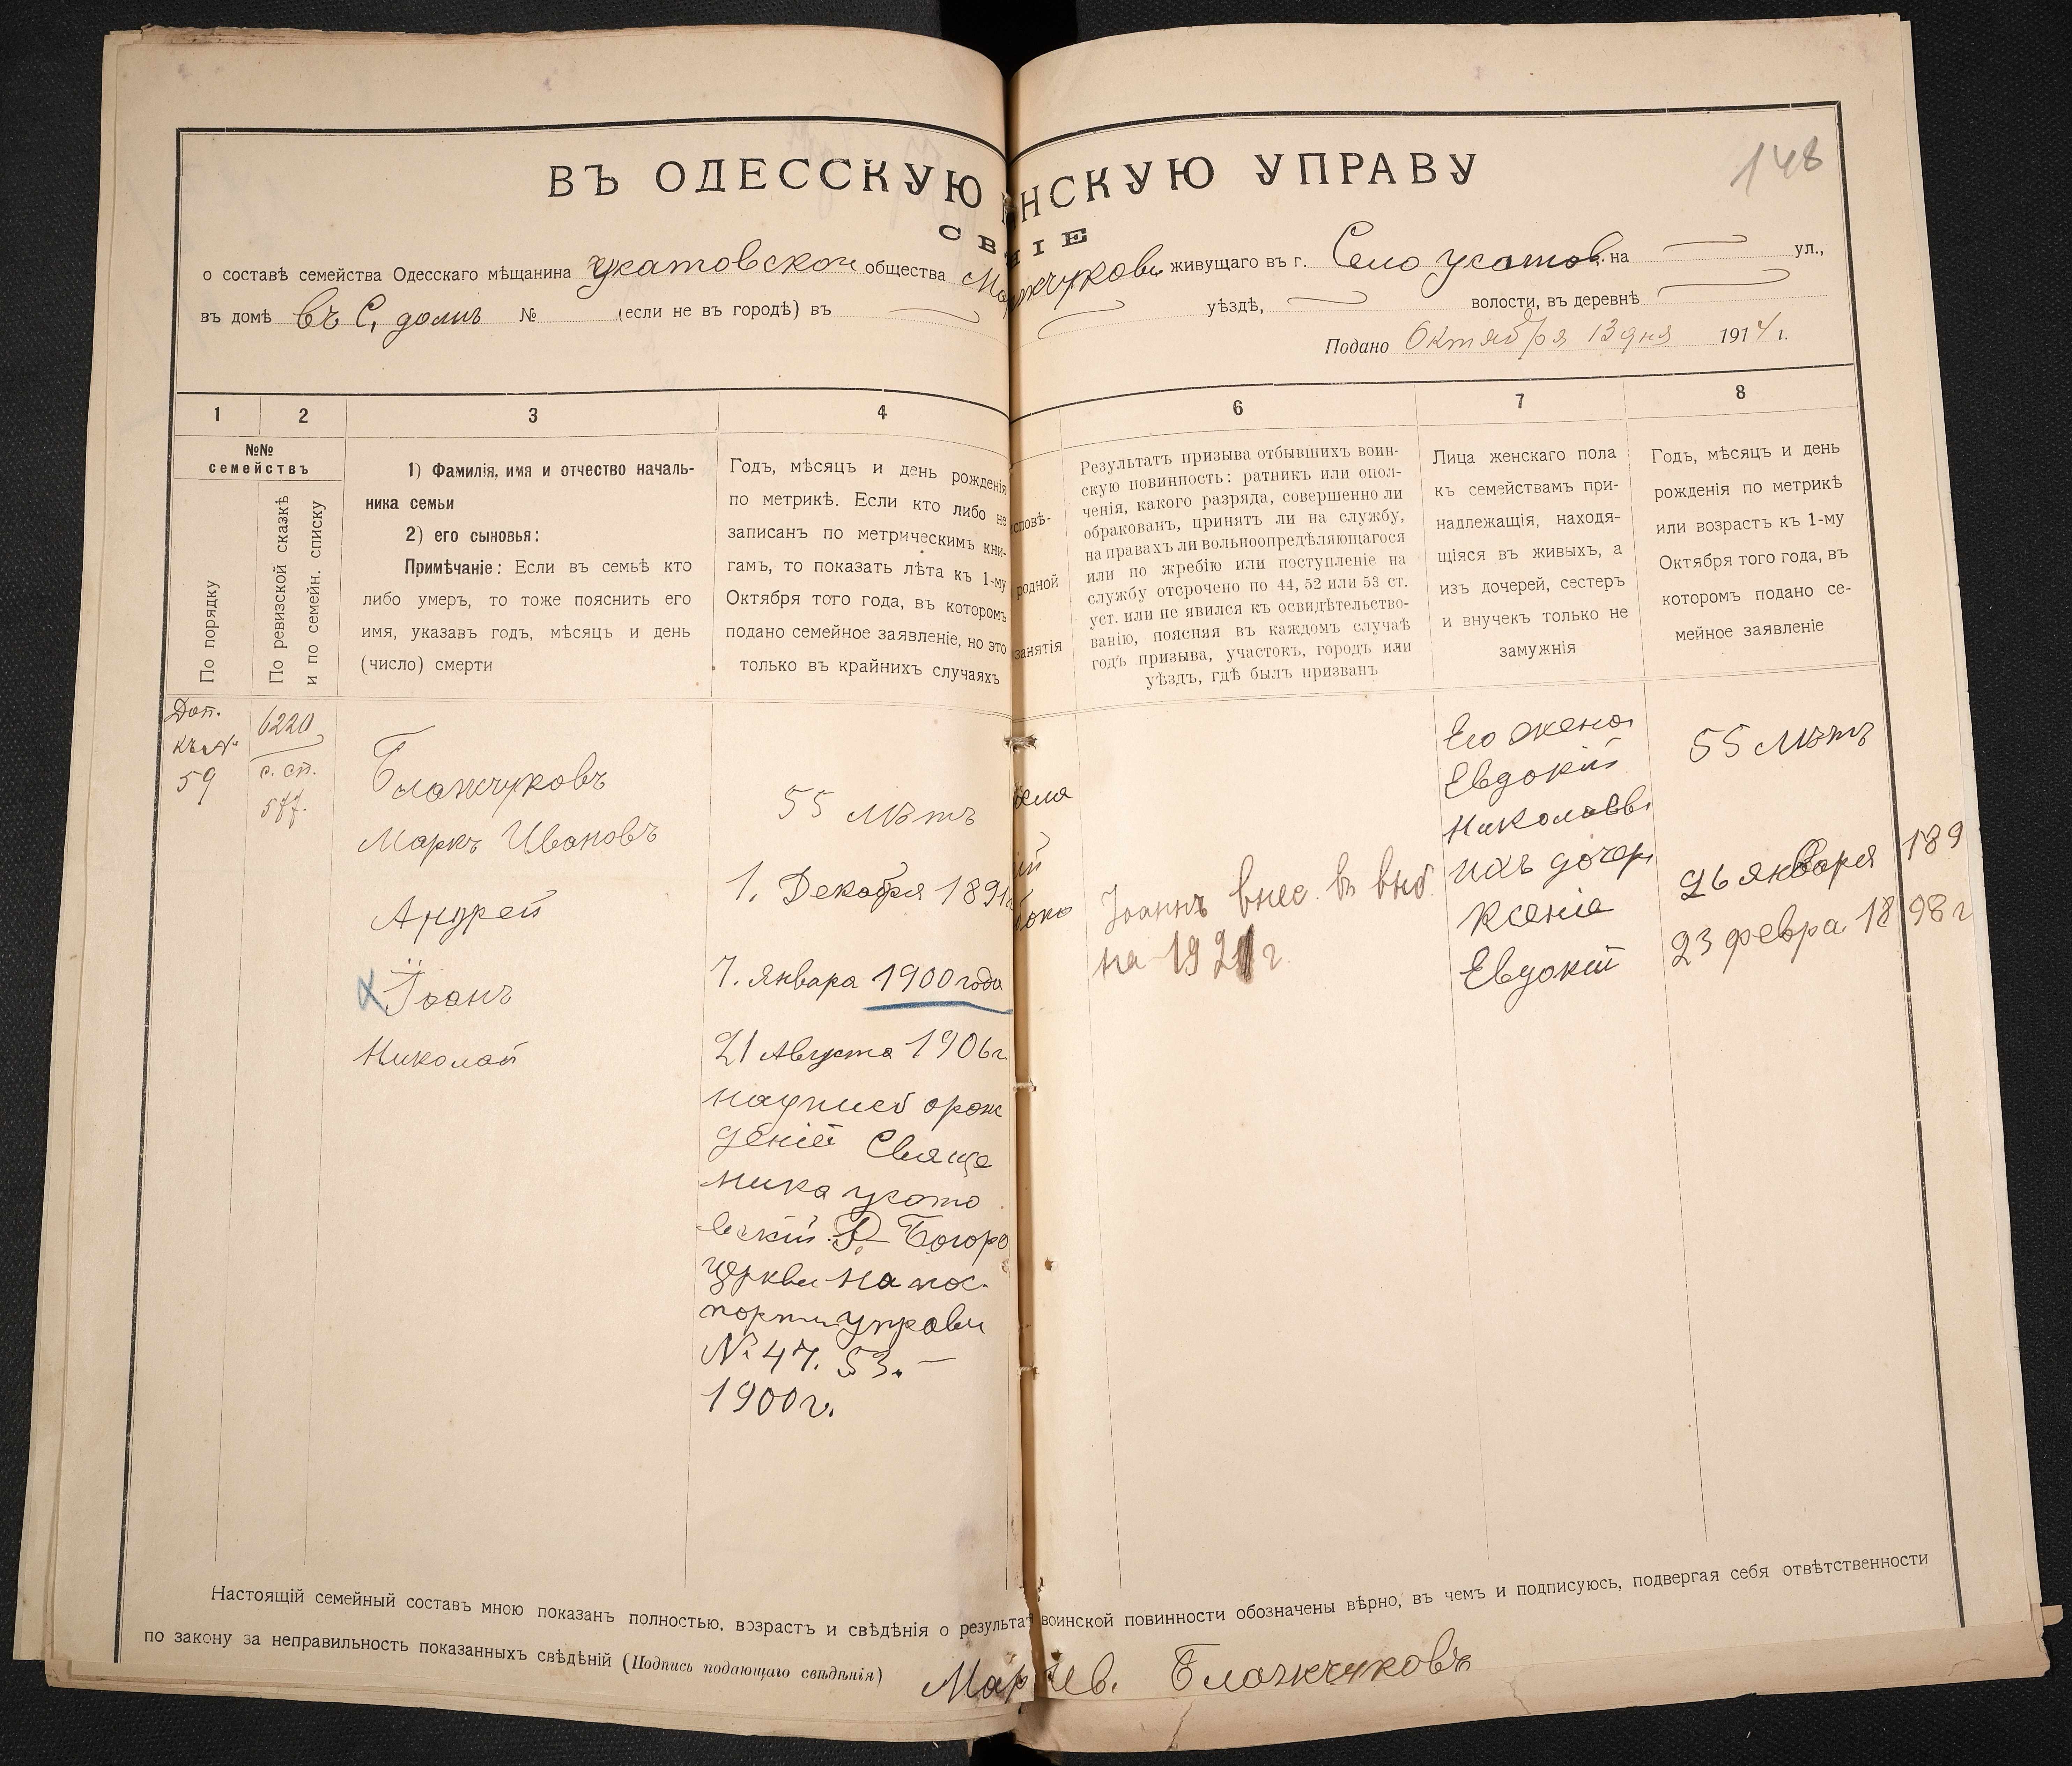 148
ВЪ ОДЕССКУЮ НСКУЮ УПРАВУ
СВ НІЕ
о составѣ семейства Одесскаго мѣщанина общества живущаго въ г. Село усатов на ул.,
въ домѣ въ С. домѣ № (если не въ городѣ) въ уѣздѣ, волости, въ деревнѣ
Подано Октября 13 дня 1914 г.
1 2 3 4 6 7 8
№№
семействъ
По порядку
По ревизской сказкѣ
и по семейн. списку
1) Фамилія, имя и отчество началь-
ника семьи
2) его сыновья:
Примѣчаніе: Если въ семьѣ кто
либо умеръ, то тоже пояснить его
имя, указавъ годъ, мѣсяцъ и день
(число) смерти
Годъ, мѣсяцъ и день рожденія
по метрикѣ. Если кто либо не
записанъ по метрическимъ кни-
гамъ, то показать лѣта къ 1-му
Октября того года, въ которомъ
подано семейное заявленіе, но это
только въ крайнихъ случаяхъ
сповѣ-
родной
занятія
Результатъ призыва отбывшихъ воин-
скую повинность: ратникъ или опол-
ченія, какого разряда, совершенно ли
обракованъ, принятъ ли на службу,
на правахъ ли вольноопредѣляющагося
или по жребію или поступленіе на
службу отсрочено по 44, 52 или 53 ст.
уст. или не явился къ освидѣтельство-
ванію, поясняя въ каждомъ случаѣ
годъ призыва, участокъ, городъ или
уѣздъ, гдѣ былъ призванъ
Лица женскаго пола
къ семействамъ при-
надлежащія, находя-
щіяся въ живыхъ, а
изъ дочерей, сестеръ
и внучекъ только не
замужнія
Годъ, мѣсяцъ и день
рожденія по метрикѣ
или возрастъ къ 1-му
Октября того года, въ
которомъ подано се-
мейное заявленіе
Доп.
къ №
59
6220
с. сп.
577.
Блажчуковъ
Маркъ Ивановъ
Андрей
Іоанъ
Николай
55 лѣтъ
1. Декабря 1891
7. Января 1900 года
21 Августа 1906 г.
надписъ орож
деніе Свяще
ника усато
вскій Р Богоро
церкви на пос
порти управи
№ 47. 53. —
1900 г.
Іоаннъ внес. въ
на 1921 г.
Его жена
Евдокій
Николаев
ихъ дочер
Ксенія
Евдокій
55 лѣтъ
26 января 189
23 февра. 1898 г
Настоящій семейный составъ мною показанъ полностью, возрастъ и свѣдѣнія о результат воинской повинности обозначены вѣрно, въ чемъ и подписуюсь, подвергая себя отвѣтственности
по закону за неправильность показанныхъ свѣдѣній (Подпись подающаго свѣдѣнія) Блажчуковъ